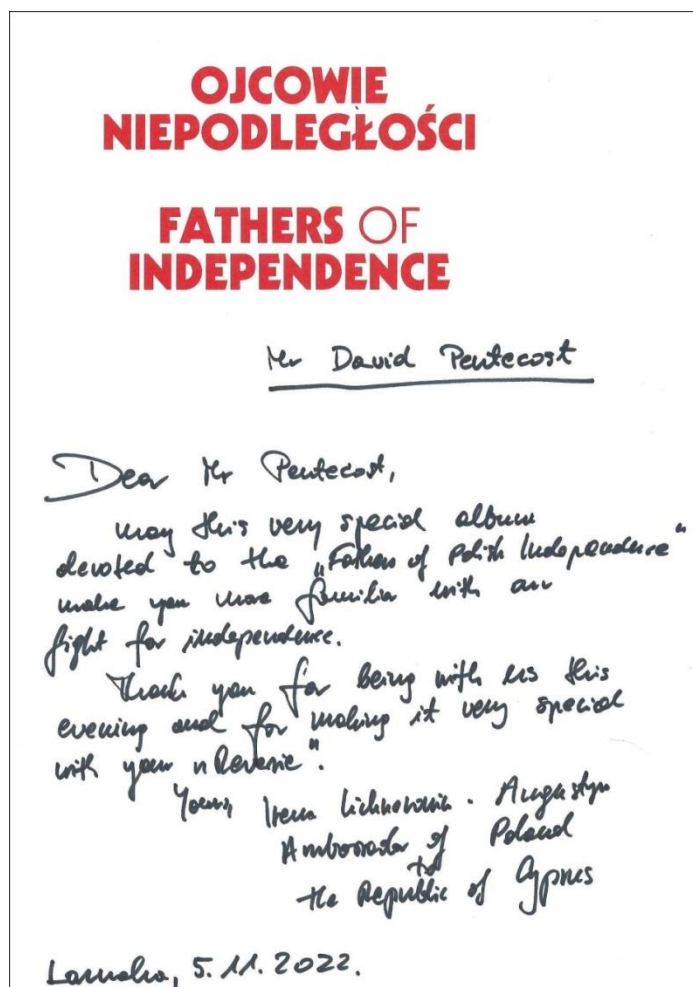 OJCOWIE
NIEPODLEGŁOŚCI
FATHERS OF
INDEPENDENCE
Mr David Pentecost
Dear Mr Pentecost,
may this very special album
devoted to the „Fathers of Polish Independence"
make you more familiar with our
fight for independence.
Thank you for being with us this
evening and for making it very special
with your „Reverie".
Yours, Irena Lichnerowicz-Augustyn
Ambassador of Poland
to
the Republic of Cyprus
Larnaka, 5.11.2022.